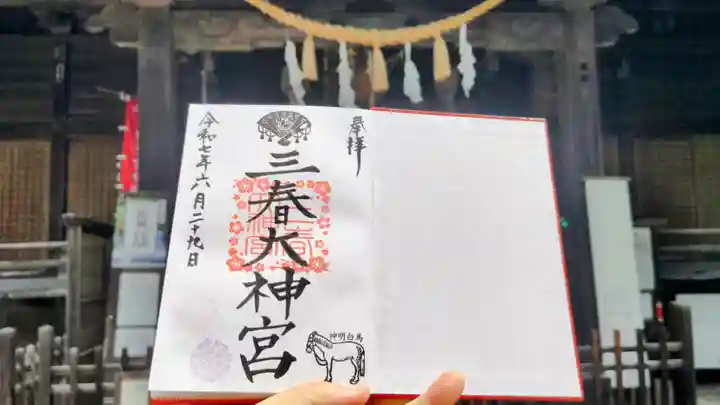 奉拝
三春大神宮
令和七年六月二十九日
神明白馬